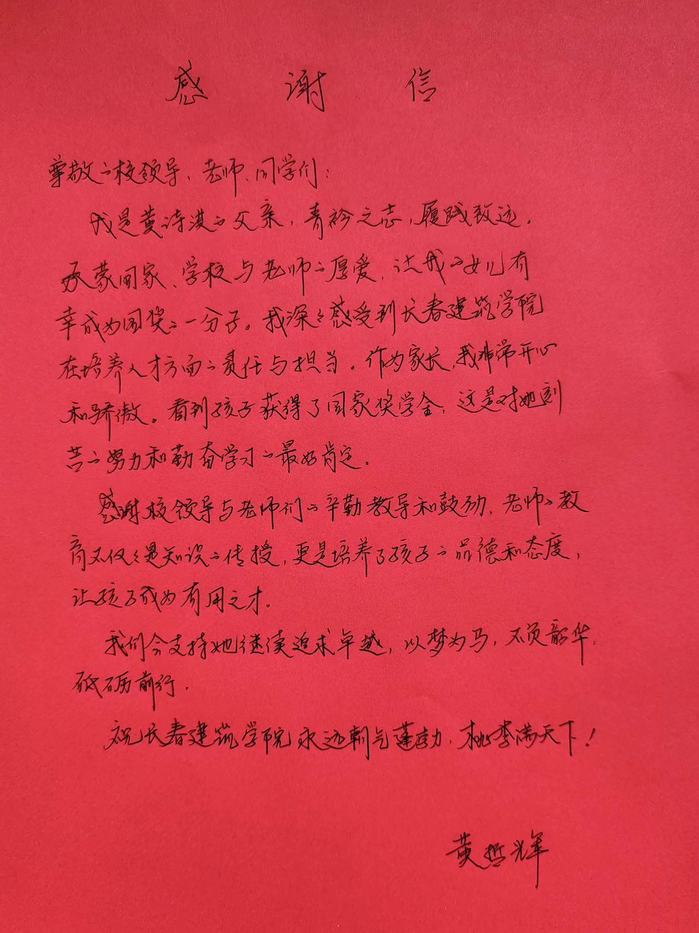 感谢信
尊敬的校领导、老师、同学们：
我是黄诗淇的父亲，青衿之志，履践致远。
承蒙国家、学校与老师的厚爱，让我的女儿有
幸成为国奖的一分子。我深深感受到长春建筑学院
在培养人才方面的责任与担当。作为家长，我非常开心
和骄傲。看到孩子获得了国家奖学金，这是对她刻
苦的努力和勤奋学习的最好肯定。
感谢校领导与老师们的辛勤教导和鼓励，老师的教
育不仅仅是知识的传授，更是培养了孩子的品德和态度，
让孩子成为有用之才。
我们会支持她继续追求卓越，以梦为马，不负韶华，
砥砺前行。
祝长春建筑学院永远朝气蓬勃，桃李满天下！
黄哲辉